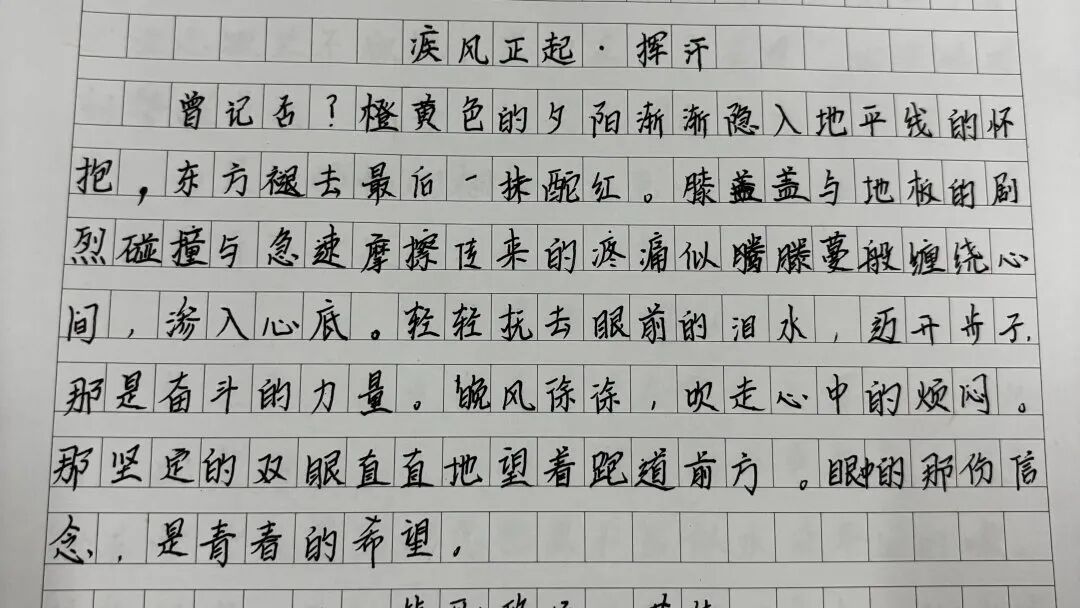 疾风正起·挥汗
曾记否？橙黄色的夕阳渐渐隐入地平线的怀
抱，东方褪去最后一抹酡红。膝盖盖与地板的剧
烈碰撞与急速摩擦传来的疼痛似腾藤蔓般缠绕心
间，渗入心底。轻轻抚去眼前的泪水，迈开步子，
那是奋斗的力量。晚风徐徐，吹走心中的烦闷。
那坚定的双眼直直地望着跑道前方。眼中的那份信
念，是青春的希望。